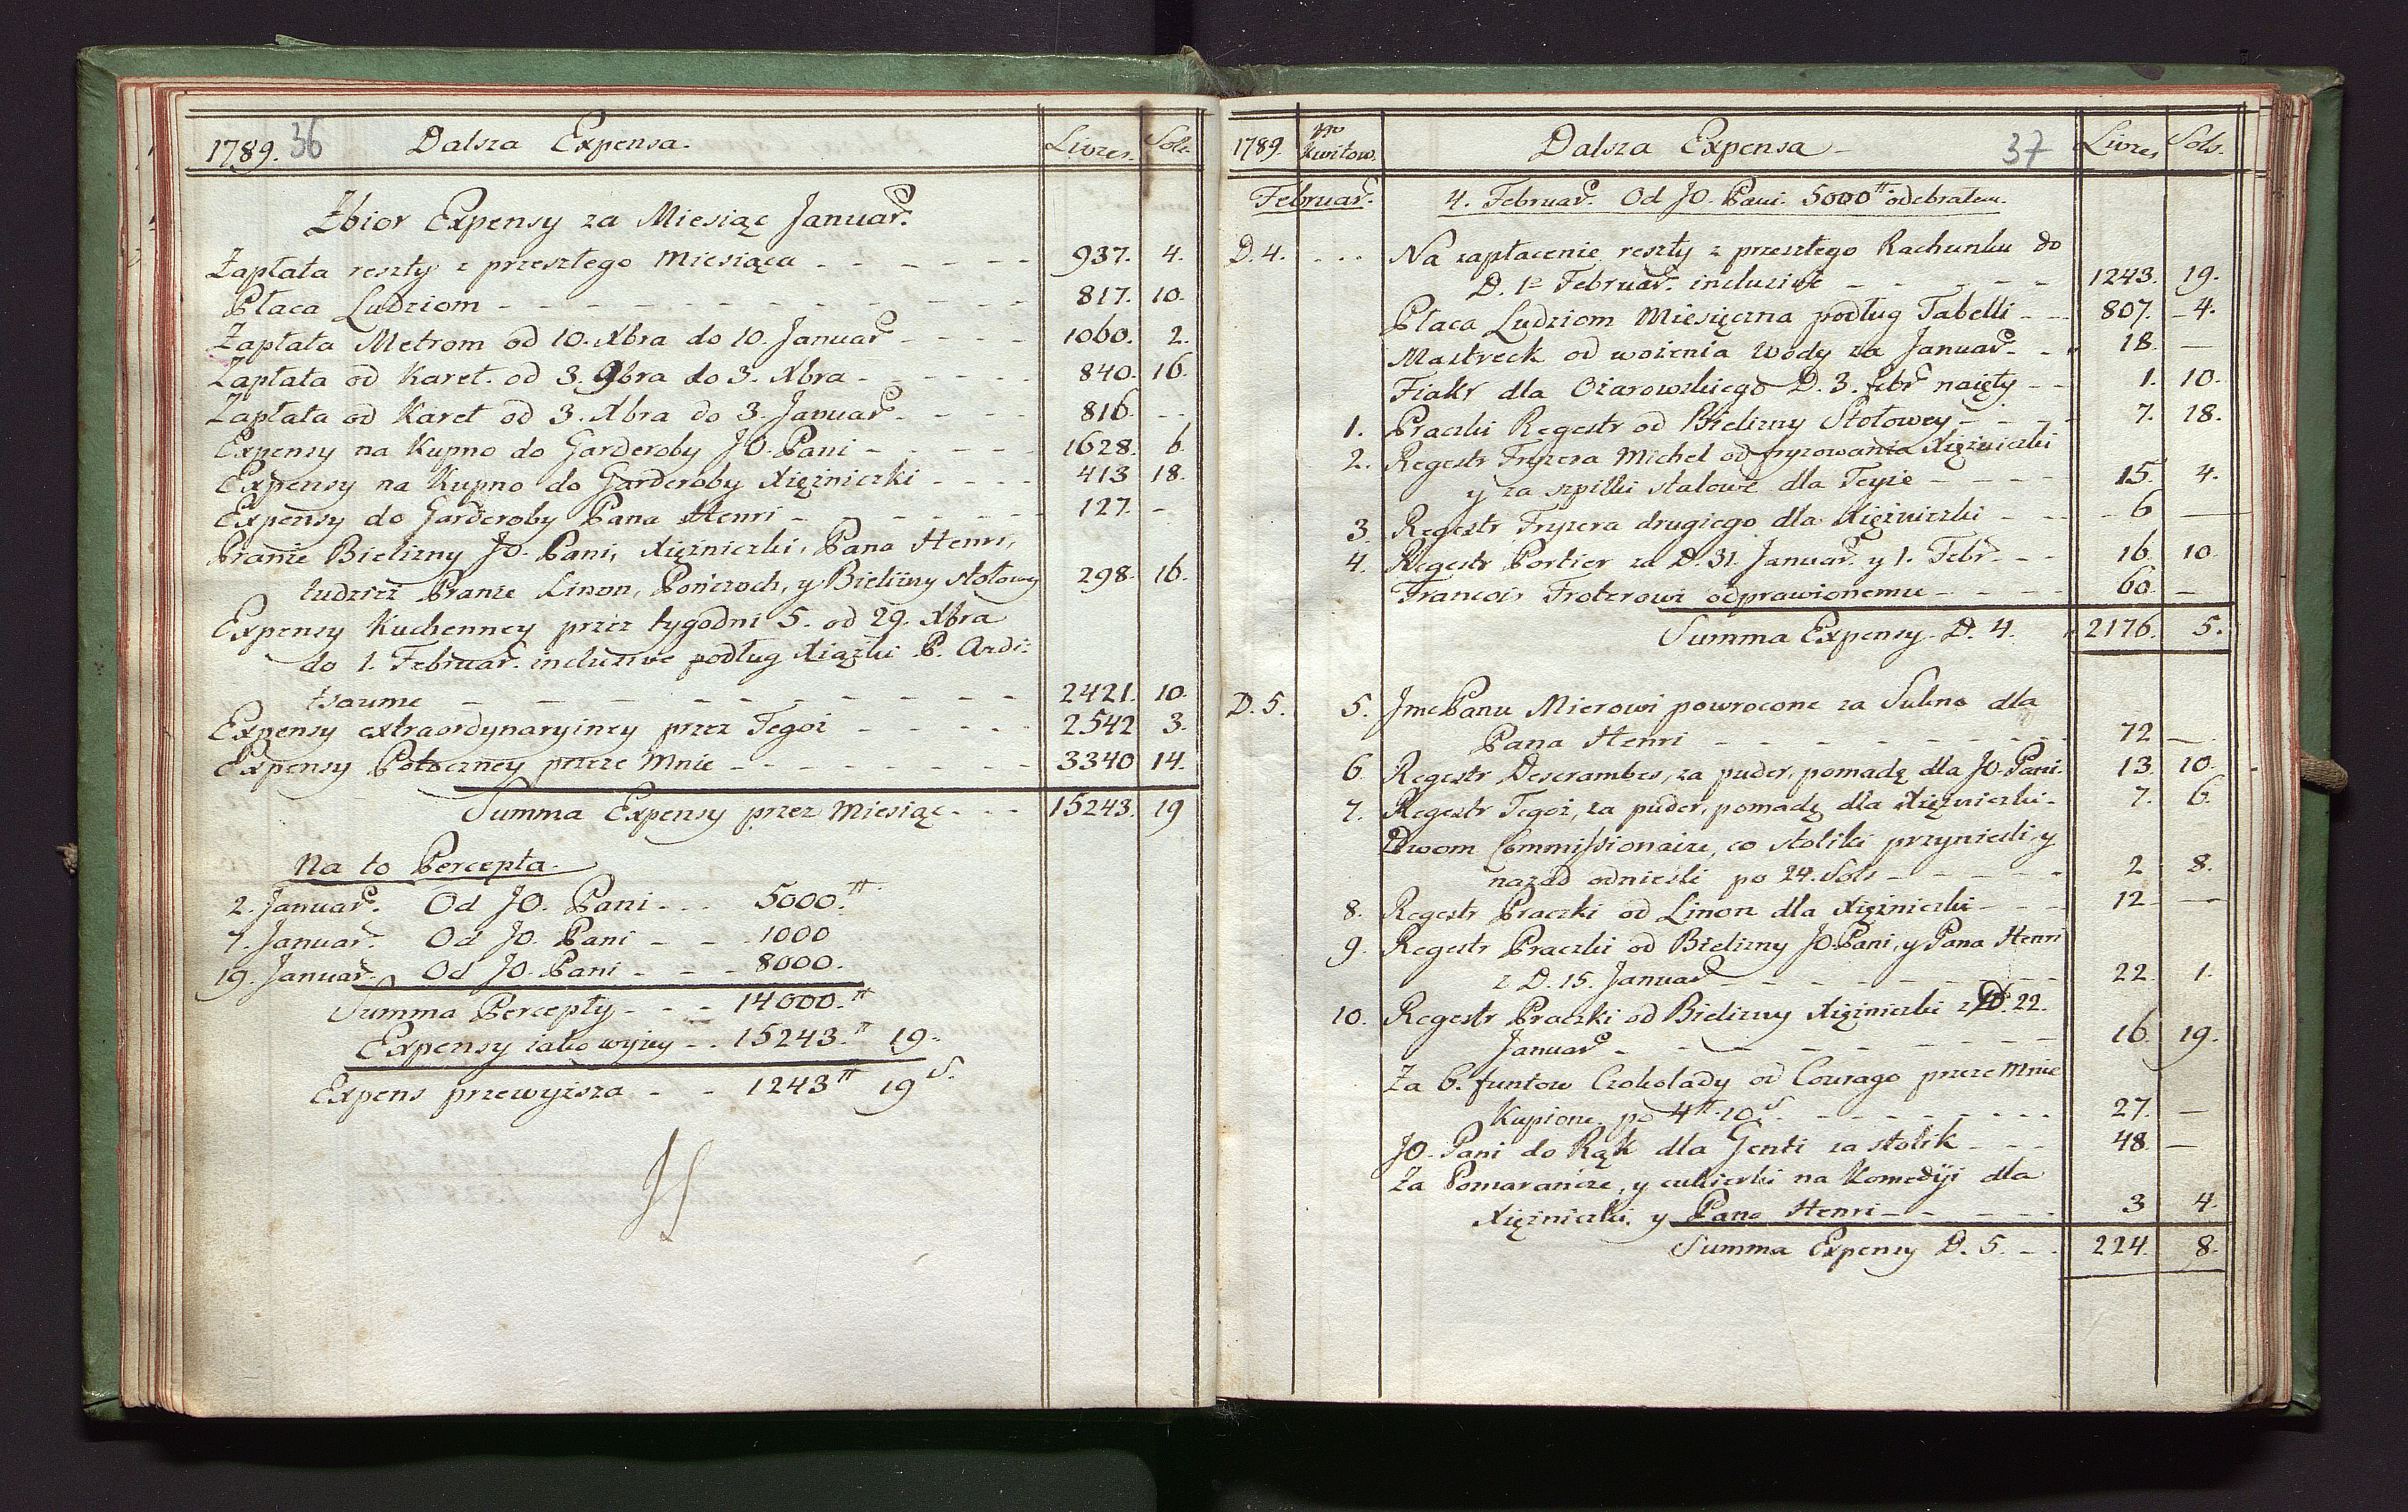 1789. 36 Dalsza Expensa. Livres. Sols.
Zbior Expensy za Miesiąc Januar.
Zapłata reszty z przeszłego Miesiąca - - - - - - 937. 4.
Płaca Ludziom - - - - - - 817. 10.
Zapłata Metrom od 10. Xbra do 10. Januar - - - - 1060. 2.
Zapłata od Karet. od 3. 9bra do 3. Xbra - - - - - 840. 16.
Zapłata od Karet od 3. Xbra do 3. Januar. - - - - 816. - -
Expensy na Kupno do Garderoby JO. Pani - - - - - 1628. 6.
Expensy na Kupno do Garderoby Xiężniczki - - - - 413 18.
Expensy do Garderoby Pana Henri - - - - - - 127. -
Pranie Bielizny JO. Pani, Xiężniczki, Pana Henri,
tudzież Pranie Linon, Pończoch, y Bielizny stołowey 298. 16.
Expensy Kuchenney przez tygodni 5. od 29. Xbra
do 1. Februar. incluzive podług Xiążki P. Ardi:
tsaume - - - - - - 2421. 10.
Expensy extraordynaryiney przez Tegoż - - - - 2542 3.
Expensy Potoczney przeze Mnie - - - - - - 3340 14.
Summa Expensy przez Miesiąc - - - 15243. 19
Na to Percepta.
2. Januar. Od JO. Pani - - - 5000.tt
7. Januar. Od JO. Pani - - - 1000
19. Januar. Od JO. Pani - - - 8000.
Summa Percepty - - - 14000.tt
Expensy iako wyżey - - 15243.tt 19.
Expens przewyższa - - 1243tt 19 S.
1789. Nro Kwitow. Dalsza Expensa - 37 Livres Sols.
Februar. 4. Februar. Od JO. Pani. 5000tt odebrałem.
D. 4. . . . Na zapłacenie reszty z przeszłego Rachunku do
D. 1= Februar. incluzive - - - - - 1243. 19.
Płaca Ludziom Miesięczna podług Tabelli - - 807. - 4.
Mastreck od wożenia Wody za Januar. - - 18. -
Fiakr dla Ożarowskiego D. 3. febr naięty - - 1. 10.
1. Praczki Regestr od Bielizny Stołowey - - - - 7. 18.
2. Regestr Fryzera Michel od fryzowania Xiężniczki
y za szpilki stalowe dla Teyże - - - - 15. 4.
3. Regestr Fryzera drugiego dla Xiężniczki - - - 6 -
4. Regestr Portier za D. 31. Januar. y 1. Febr. - - 16. 10.
Francois Froterowi odprawionemu - - - - 60. -
Summa Expensy D. 4. 2176. 5.
D. 5. 5. Jmc Panu Mierowi powrocone za Sukno dla
Pana Henri - - - - - - - 72 -
6 Regestr Descrambes, za puder, pomadę dla JO. Pani. 13. 10.
7. Regestr Tegoż, za puder, pomadę dla Xiężniczki - 7. 6.
Dwom Commissionaire, co stoliki przynieśli y
nazad odnieśli po 24. Sols - - - - - 2 8.
8. Regestr Praczki od Linon dla Xiężniczki - - - 12 -
9. Regestr Praczki od Bielizny JO. Pani, y Pana Henri
z D. 15. Januar - - - - - - 22. 1.
10. Regestr Praczki od Bielizny Xiężniczki z D. 22.
Januar - - - - - - - 16. 19.
Za 6. funtow Czokolady od Courago przeze Mnie
Kupione po 4tt. 10S. - - - - - - - - 27. -
JO. Pani do Rąk dla Genti za stolik - - - 48 -
Za Pomarańcze, y cukierki na Komedyi dla
Xiężniczki, y Pana Henri - - - - - 3 4.
Summa Expensy D. 5. - - 224. 8.